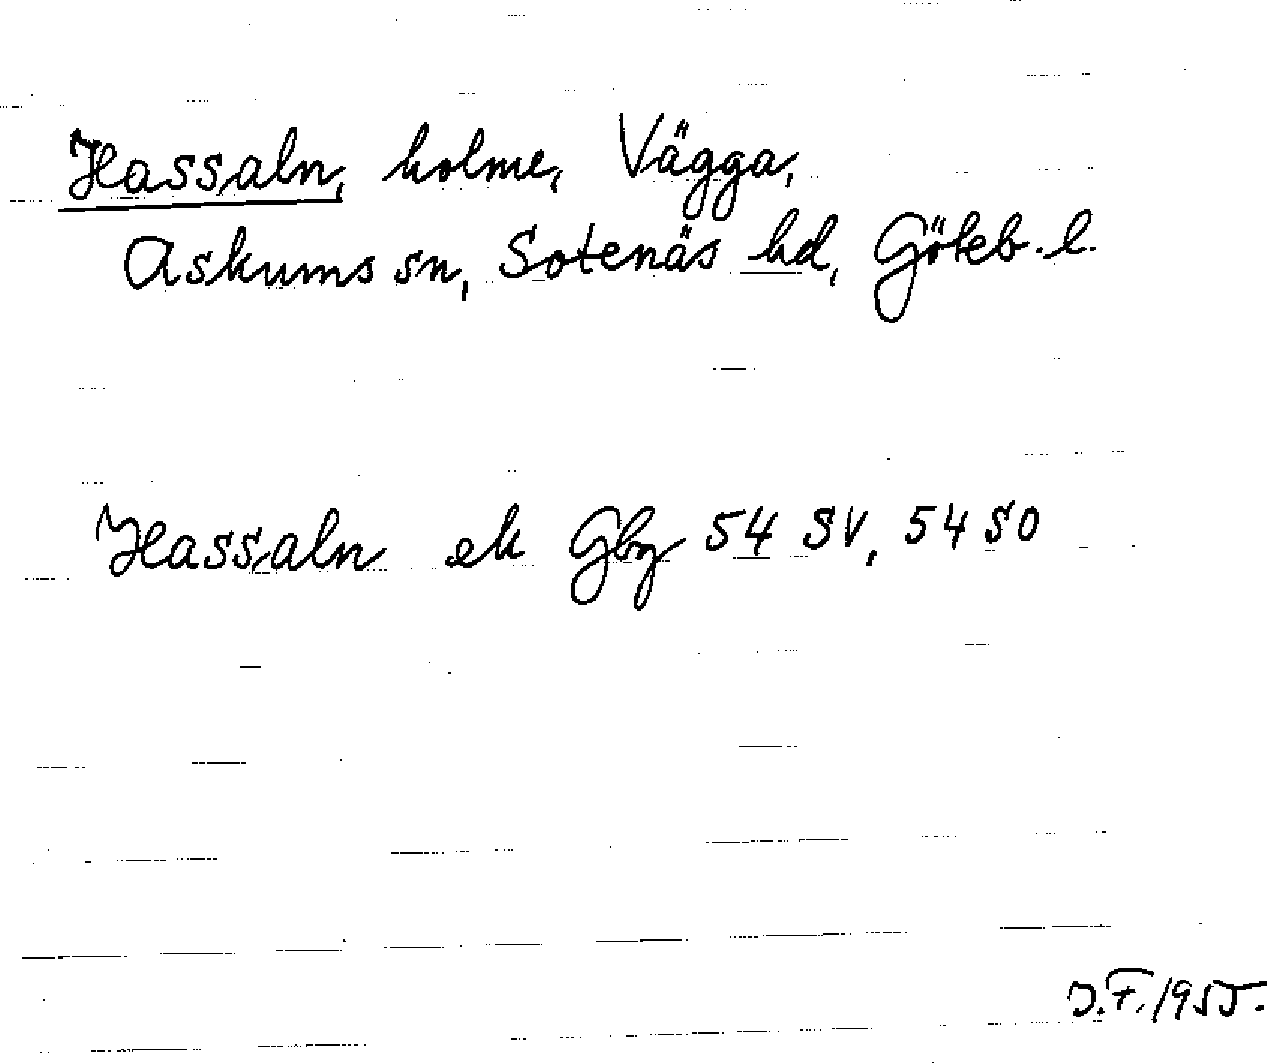 Hassaln, holme, Vägga,
Askums sn, Sotenäs hd, Göteb. l.
Hassaln ek Gbg 54 SV, 54 SO
J.F. 1955.